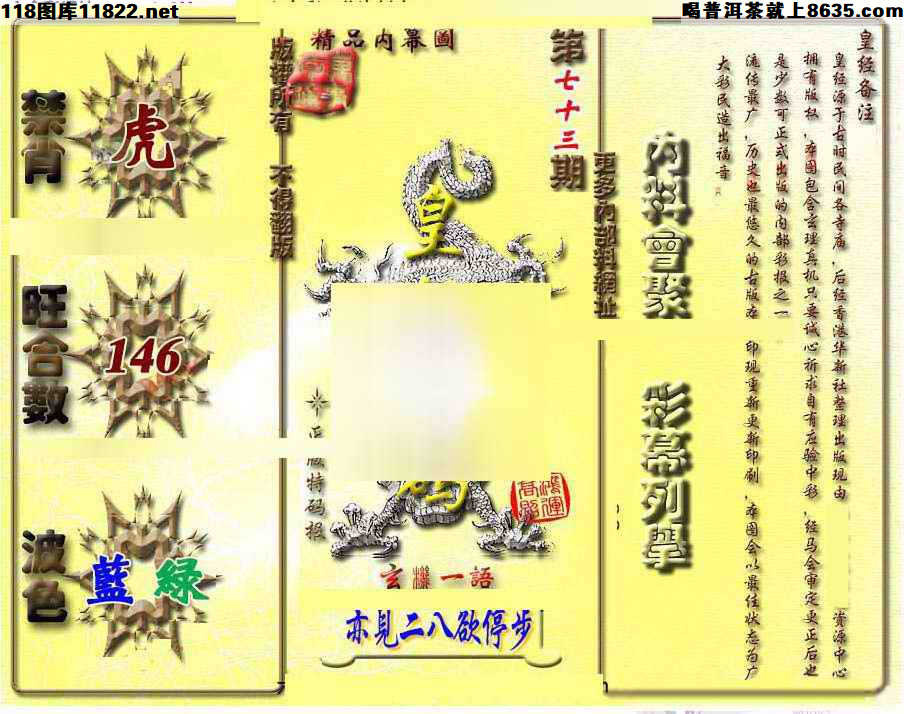 118图库11822.net
喝普洱茶就上8635.com
禁肖
虎
旺合數
146
波色
藍 綠
版權所有 不得翻版
精品内幕圖
第七十三期
更多内部料網址
皇
正版特码报
玄機一語
亦見二八欲停步
内料會聚
彩幕列舉
皇经备注
皇经源于古时民间各寺庙，后经香港华新社整理出版现由
资源中心
拥有版权，本图包含玄理真机只要诚心祈求自有应验中彩，经马会审定更正后也
是少数可正式出版的内部彩报之一
流传最广，历史也最悠久的古版本
印现重新更新印刷，本图会以最佳状态为广
大彩民造出福音